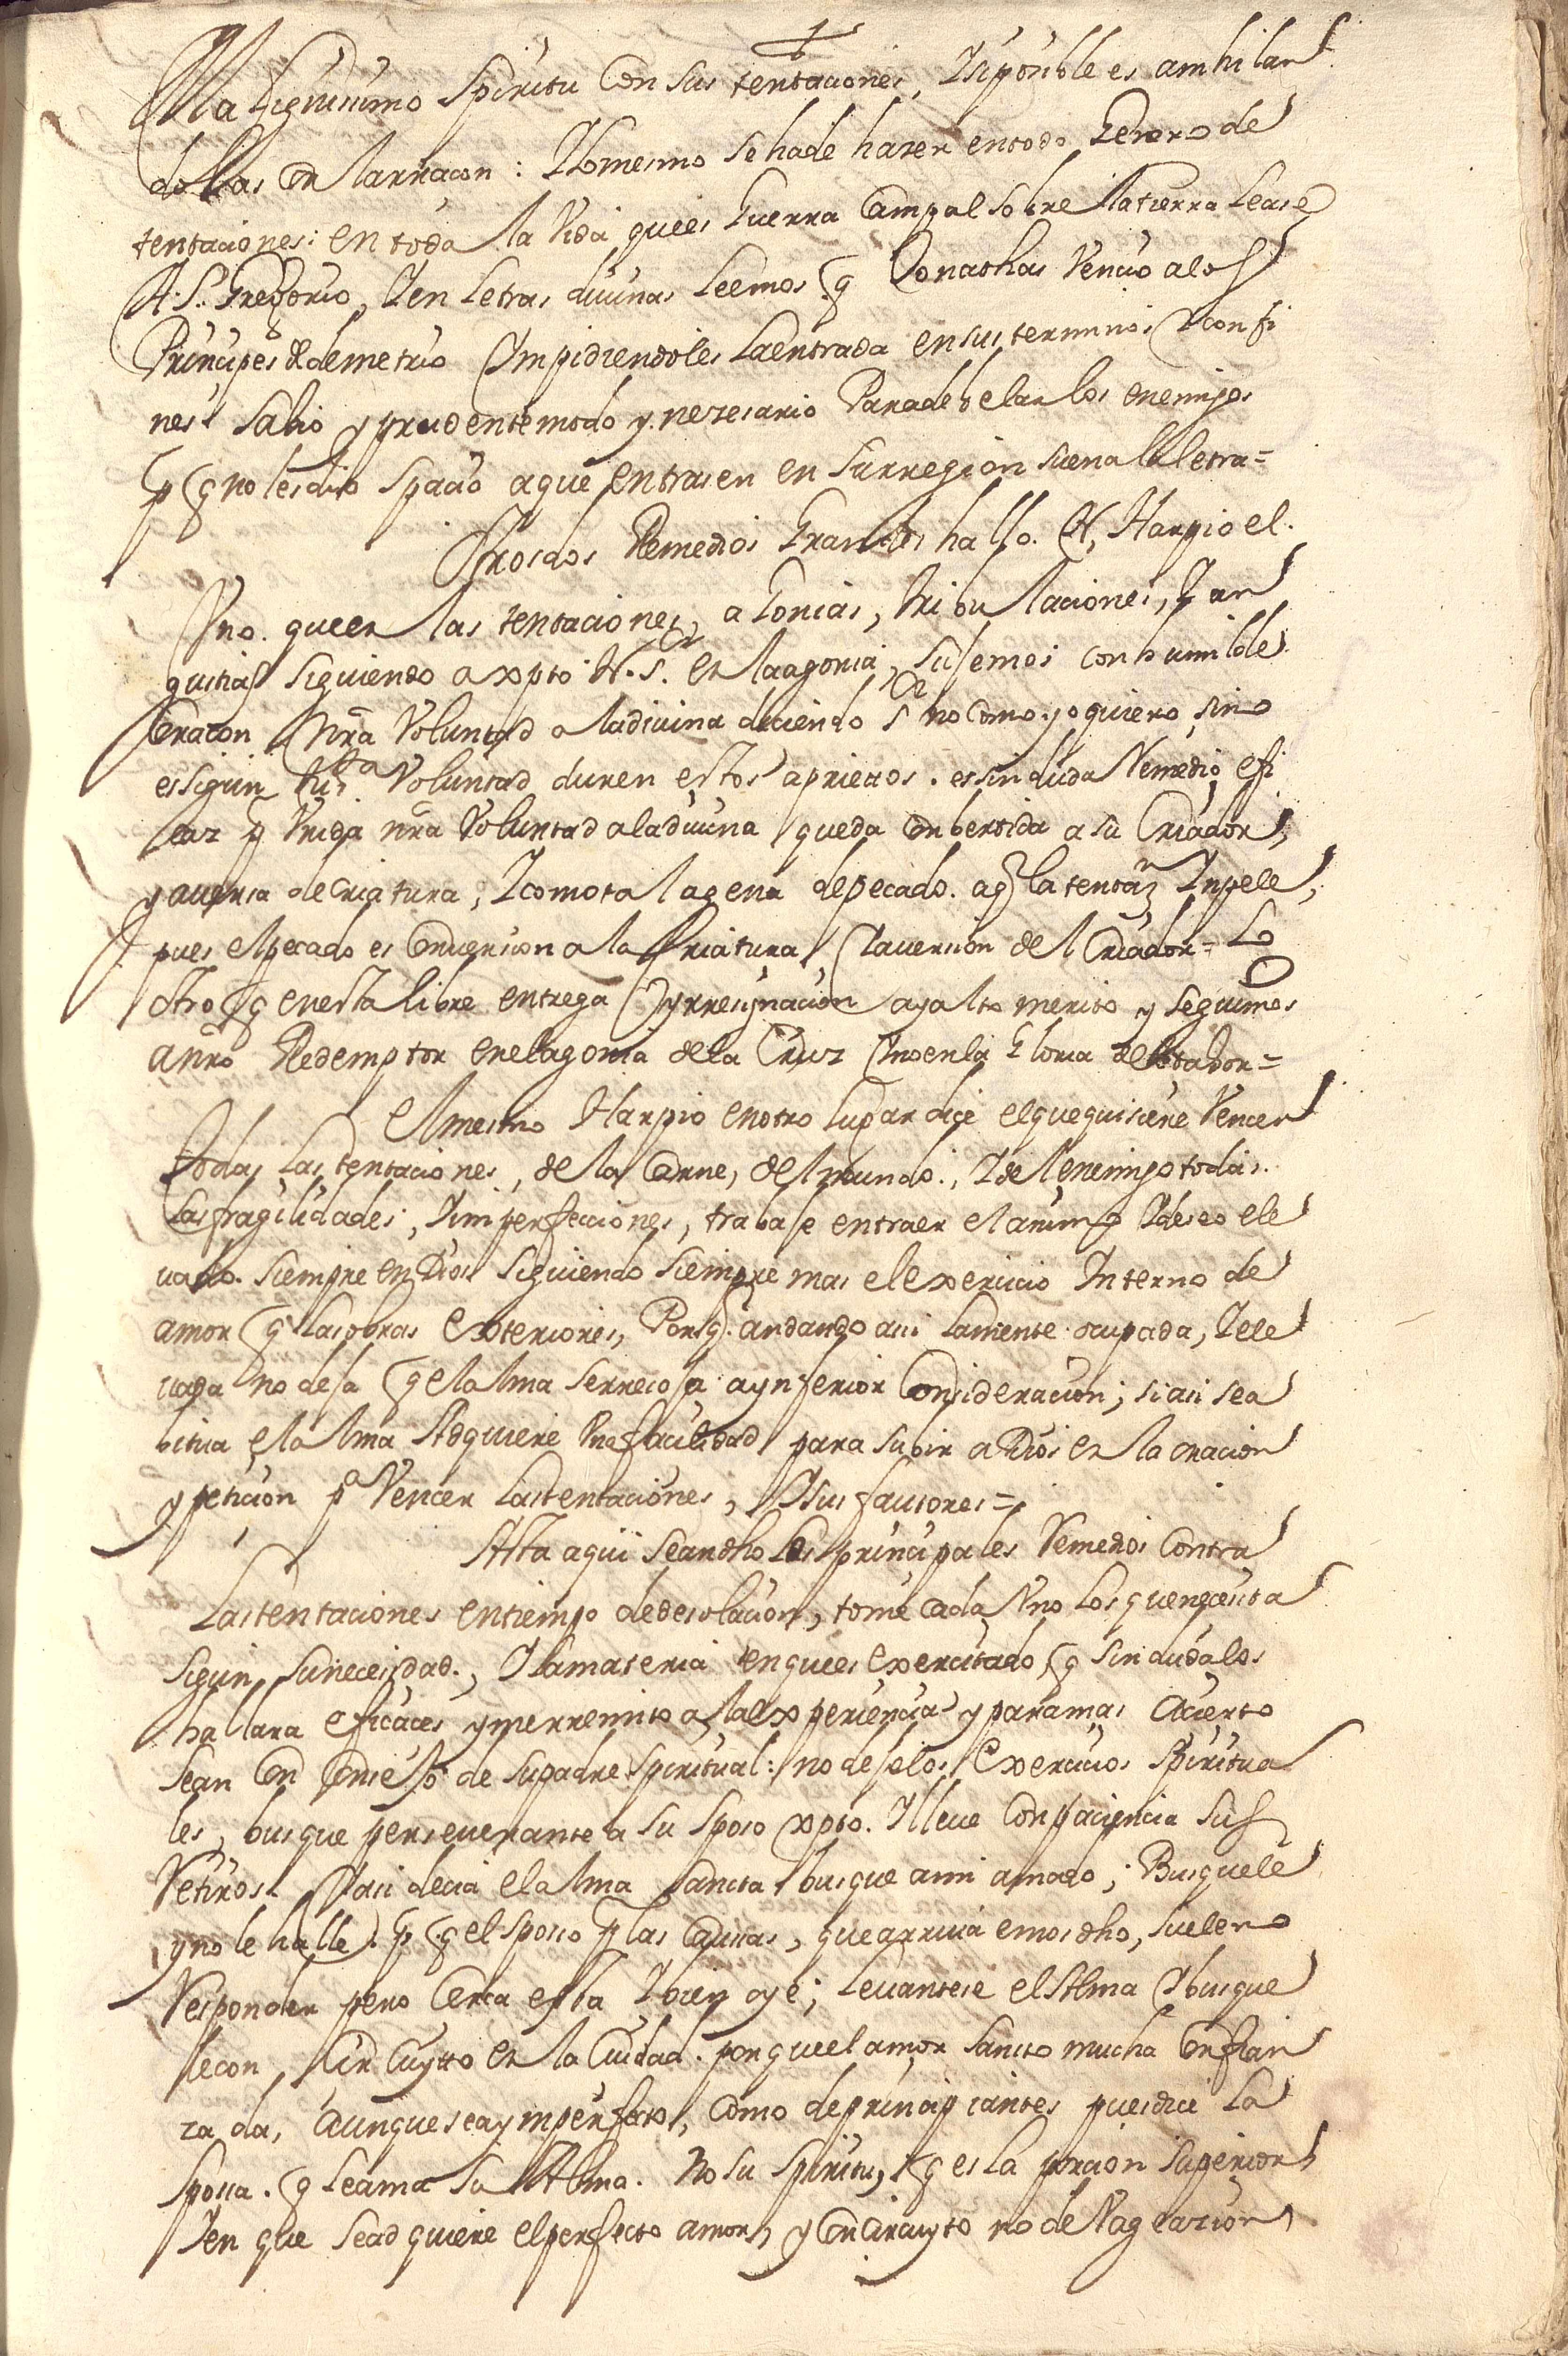 Malignissimo Spiritu Con sus tentaciones, Isiposible es anihilan
dolas en la rraçon : Y lo mesmo se ha de hazer en todo Genero de
tentaciones: en toda la Vida que es Guerra Campal sobre la tierra Lease
A. S. Gregorio, Y en Letras divinas Leemos q Jonathas Vencio a los
Principes de demetrio Impidiendoles La entrada en sus terminos Y confi
nes sabio y prudente modo y nezesario Para debelar los enemigos
p q no les dio Spacio a que entrasen en su rregion suena la letra =
Otros dos Remedios Grandes hallo. En Harpio el
Vno. que en las tentaciones, agonias, tribulaciones, Y an
gustias siguiendo a xpto N. S. en la agonia, sujemos con humilde
Oracon nra Voluntad a la divina diciendo Sr no Como yo quiero, sino
es sigun tu sta Voluntad duren estos aprietos. es sin duda Remedio efi
caz p Vnida nra Voluntad a la divina queda Conbertida a su Criador,
y aversa de Criatura, Y como tal agena de pecado. a q la tentaon Inpele,
pues el pecado es Conversion a la Criatura, Y aversion del Criador = Lo
otro q en esta libre entrega Y rresignacion ay alto merito y seguimos
a nro Redemptor en el agonia de la Cruz Y no en la Gloria del tabor =
El mesmo Harpio en otro lugar dice el que quisiere Vencer
todas las tentaciones, de la Carne, del mundo, Y del enemigo todas
Las fragilidades, Y imperfecciones, trabaje en traer el animo Y deseo ele
uado siempre en Dios siguiendo siempre mas el exercicio Interno de
amor q las obras exteriores, Porq andando asi la mente ocupada, Y ele
uada no deja q el alma se rrecoja a ynferior Consideracion; si asi se a
bitua el alma Adquiere Vna facilidad para subir a Dios en la oracion
y peticion pa Vencer las tentaciones, Y sus fautores =
Asta aqui se an dho Los principales Remedios Contra
Las tentaciones en tiempo de desolacion, tome Cada Vno Los que necesita
sigun su necesidad, Y la materia en que es exercitado q sin duda los
hallara eficaces y me rremito a la experiencia y para mas acierto
sean Con Consejo de su padre Spiritual: no deje los Exercicios Spiritua
les, busque perseverante a su Sposo xpto. Y lleve Con paciencia sus
Retiros. Y asi decia el alma Sancta busque a mi amado; Busquele
y no le halle. p q el Sposo p las Causas, que arriua emos dho, suele no
Responder pero Cerca esta Y bien oye; Levantese el Alma Y busque
le con, Circuyto en la Ciudad. porque el amor Sancto mucha Confian
za da, Aunque sea ymperfecto, Como de principiantes pues dice La
Sposa. q le ama su Alma. No su Spiritu, q es la porcion superior
Y en que se adquiere el perfecto amor, y Con Circuyto no de Vageazion